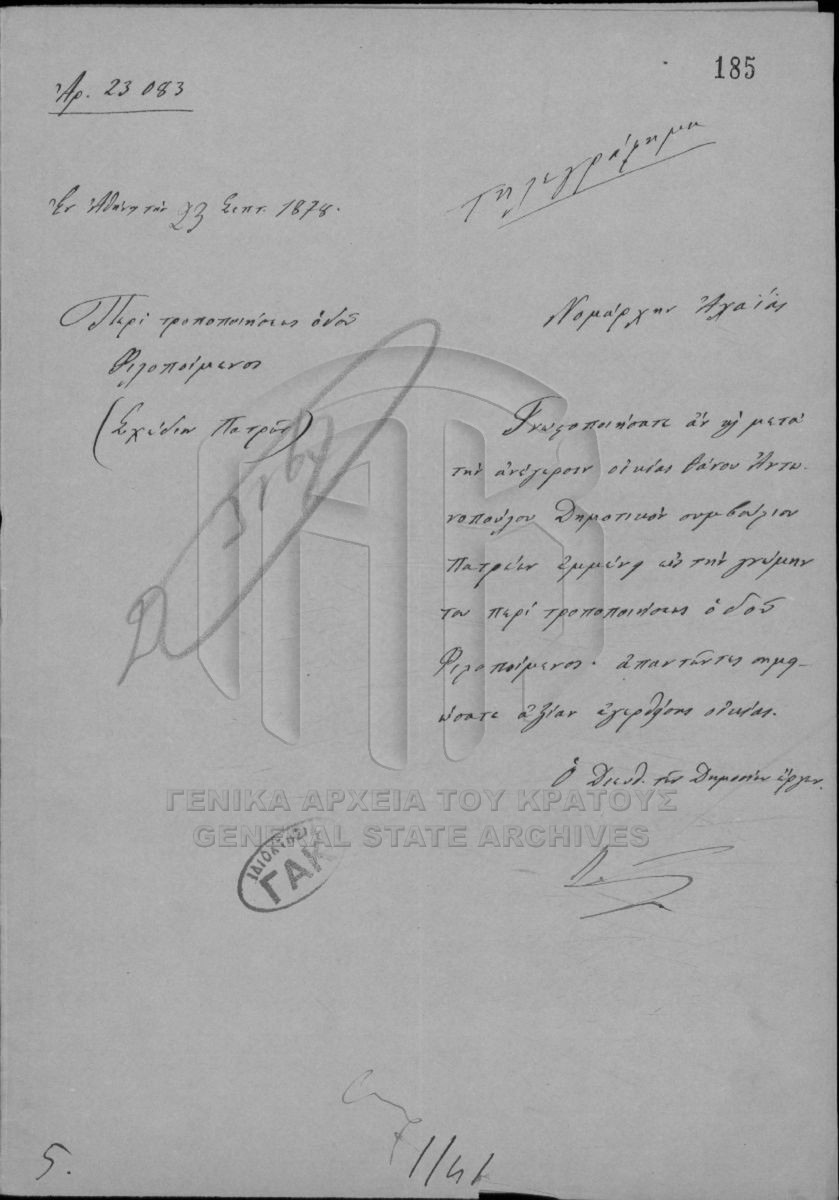 185
Αρ. 23 083
Τηλεγράφημα
Εν Αθήναις την 23 Σεπτ. 1878.
Περί τροποποιήσεως οδού
Φιλοποίμενος
(Σχέδιον Πατρών)
Νομάρχην Αχαΐας
Γνωστοποιήσατε αν και μετά
την ανέγερσιν οικίας Θάνου Αντω-
νοπούλου Δημοτικόν συμβούλιον
Πατρέων εμμένη εις την γνώμην
του περί τροποποιήσεως οδού
Φιλοποίμενος· απαντώντες σημει-
ώσατε αξίαν εγερθείσης οικίας.
Ο Διευθ. των Δημοσίων έργων
ΓΕΝΙΚΑ ΑΡΧΕΙΑ ΤΟΥ ΚΡΑΤΟΥΣ
GENERAL STATE ARCHIVES
ΙΔΙΟΚΤΗΣΙΑ
ΓΑΚ
5.